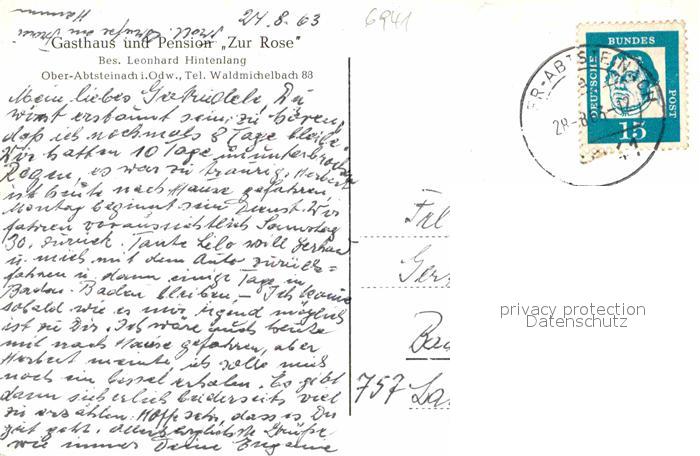 24.8.63
6941
Gasthaus und Pension „Zur Rose"
Bes. Leonhard Hintenlang
Ober-Abtsteinach i. Odw., Tel. Waldmichelbach 88
Mein liebes Gertrudele, Du
wirst erstaunt sein, zu hören,
daß ich nochmals 8 Tage bleibe.
Wir hatten 10 Tage ununterbrochen
Regen, es war zu traurig. Herbert
ist heute nach Hause gefahren,
Montag beginnt sein Dienst. Wir
fahren voraussichtlich Samstag
30. zurück. Tante Lilo will
u. mich mit dem Auto zurück-
fahren u. dann einige Tage in
Baden-Baden bleiben, – Ich komme
sobald wie es mir irgend möglich
ist zu Dir. Ich wäre auch heute
mit nach Hause gefahren, aber
Herbert meinte, ich solle mich
noch ein bessel erholen. Es gibt
dann sicherlich beiderseits viel
zu erzählen. Hoffe sehr, dass es Dir
gut geht. Allerherzlichste Grüße
wie immer Deine Eugenie
DEUTSCHE BUNDES POST
15
Frl
Ger
Ba
757 La
privacy protection
Datenschutz